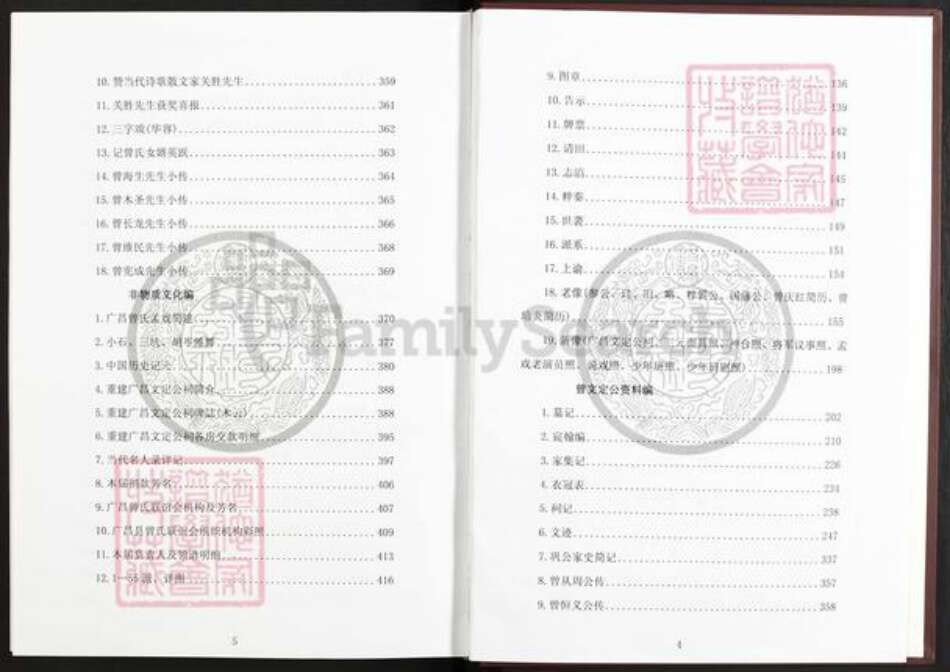 9.图章 136
10.告示 139
11.牌票 142
12.请田 144
13.志铭 145
14.粹秦 147
15.世袭 149
16.派系 151
17.上谕 154
18.老像
155
19.新像(广昌文定公祠、
198
曾文定公资料编
1.墓记 202
2.宸翰编 210
3.家集记 226
4.衣冠表 234
5.祠记 238
6.文迹 247
7.巩公家史简记 337
8.曾从周公传 357
9.曾恒义公传 358
4
10.赞当代诗歌散文家关胜先生 359
11.关胜先生获奖喜报 361
12.三字戏(华容) 362
13.记曾氏女婿英跃 363
14.曾海生先生小传 364
15.曾木圣先生小传 365
16.曾长龙先生小传 366
17.曾维民先生小传 368
18.曾宪成先生小传 369
非物质文化编
1.广昌曾氏孟戏简述 370
2.小石、三坑、胡岑 377
3.中国历史记元 380
4.重建广昌文定公祠简介 388
5.重建广昌文定公祠碑志 388
6.重建广昌文定公祠各房交款明细 395
7.当代名人录详记 397
8.本届捐款芳名 406
9.广昌曾氏联谊会机构及芳名 407
10.广昌县曾氏联谊会组织机构彩照 409
11.本届负责人及领谱明细 413
12.1—55派、详图 416
5
FamilySearch
猶他家譜學會收藏
猶他家譜學會收藏